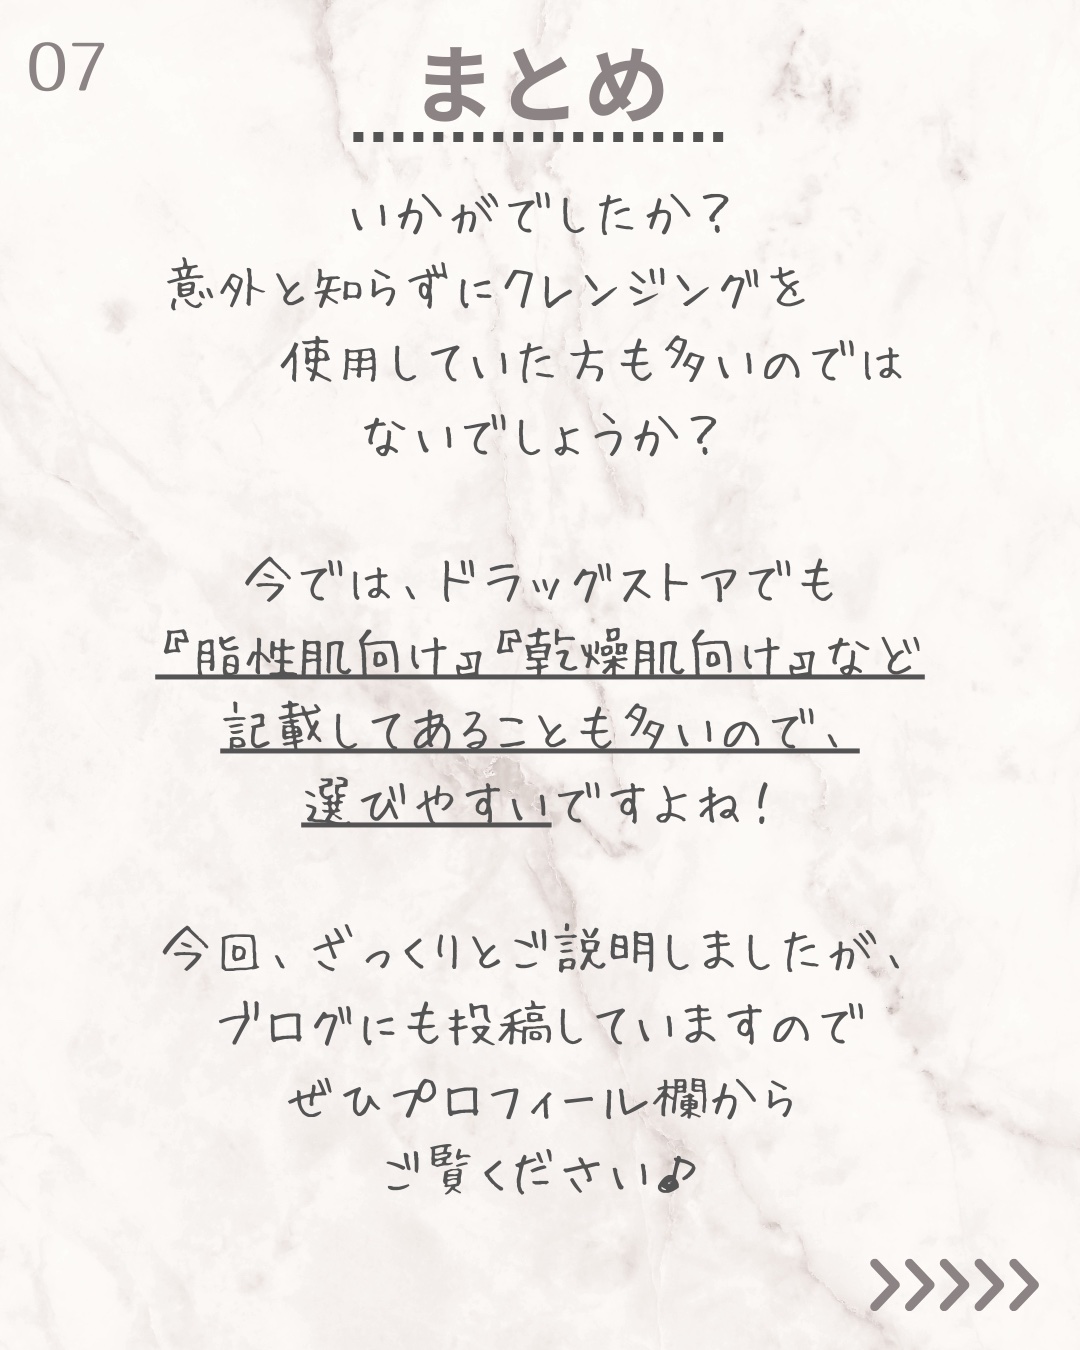 07
まとめ
いかがでしたか？
意外と知らずにクレンジングを
使用していた方も多いのでは
ないでしょうか？
今では、ドラッグストアでも
『脂性肌向け』『乾燥肌向け』など
記載してあることも多いので、
選びやすいですよね！
今回、ざっくりとご説明しましたが、
ブログにも投稿していますので
ぜひプロフィール欄から
ご覧ください♪